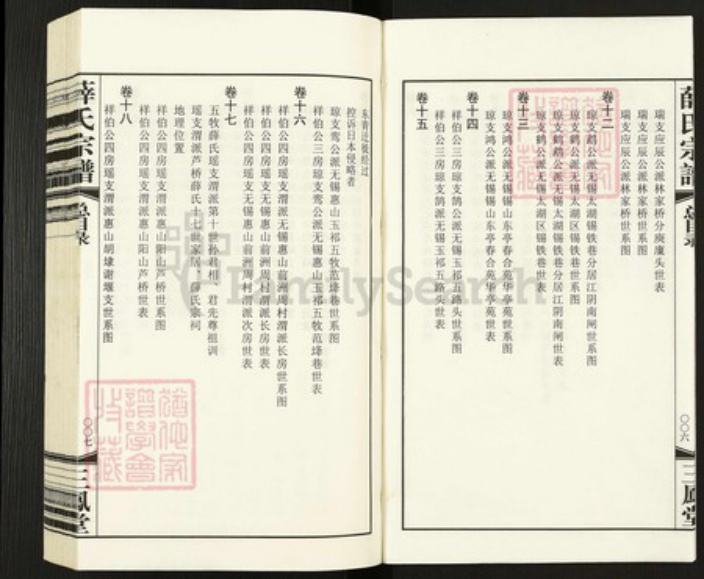 薛氏宗谱
总目录
〇〇六
三凤堂
瑞支应辰公派林家桥分庾廪头世表
瑞支应辰公派林家桥世系图
瑞支应辰公派林家桥世表
卷十二
琼支鹤公派无锡太湖锡铁巷分居江阴南闸世系图
琼支鹤公派无锡太湖区锡铁巷世系图
琼支鹤公派无锡太湖锡铁巷分居江阴南闸世表
琼支鹤公派无锡太湖区锡铁巷世表
卷十三
琼支鸿公派无锡锡山东亭春合苑华亭苑世系图
琼支鸿公派无锡锡山东亭春合苑华亭苑世表
卷十四
祥伯公三房琼支鹄公派无锡玉祁五路头世系图
祥伯公三房琼支鹄公派无锡玉祁五路头世表
卷十五
东青迁徙经过
控诉日本侵略者
琼支鸾公派无锡惠山玉祁五牧范烽巷世系图
祥伯公三房琼支鸾公派无锡惠山玉祁五牧范烽巷世表
卷十六
祥伯公四房瑶支渭派无锡惠山前洲周村渭派长房世系图
祥伯公四房瑶支无锡惠山前洲周村渭派长房世表
祥伯公四房瑶支无锡惠山前洲周村渭派次房世表
卷十七
五牧薛氏瑶支渭派第十世孙君相、君先尊祖训
瑶支渭派芦桥薛氏十七世家有、薛氏宗祠
地理位置
祥伯公四房瑶支渭派惠山阳山芦桥世系图
祥伯公四房瑶支渭派惠山阳山芦桥世表
卷十八
祥伯公四房瑶支渭派惠山胡埭谢堰支世系图
薛氏宗谱
总目录
〇〇七
三凤堂
FamilySearch